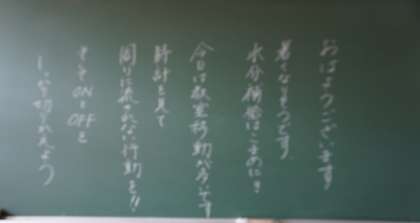 おはようございます
暑くなりそうです
水分補給はこまめに!
今日は教室移動が多いです
時計を見て
周りに流されない行動を!!
ONとOFFを
しっかり切りかえよう